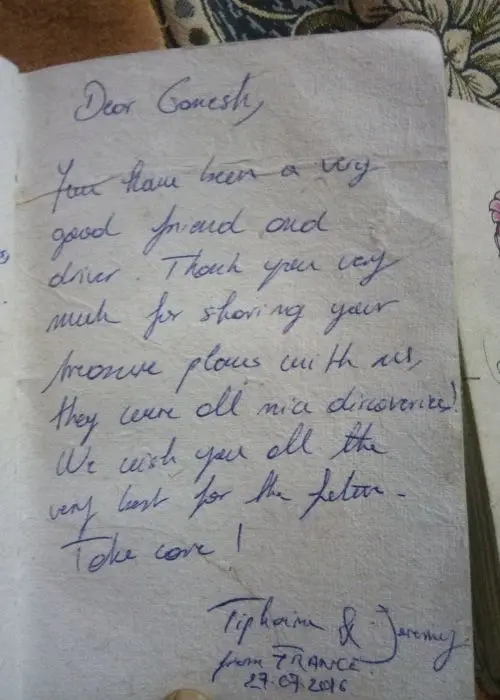 Dear Ganesh,
You have been a very
good friend and
driver. Thank you very
much for sharing your
treasure places with us,
they were all nice discoveries!
We wish you all the
very best for the future.
Take care!
Tiphaine & Jeremy
from FRANCE
27.07.2016